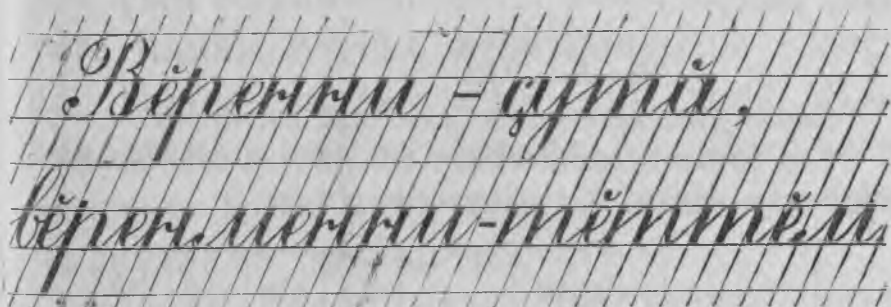 Вӗренни - ҫутӑ,
вӗренменни-тӗттӗм